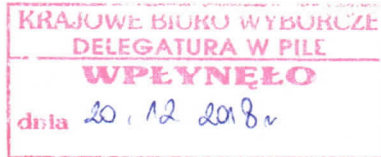 KRAJOWE BIURO WYBORCZE
DELEGATURA W PILE
WPŁYNĘŁO
dnia 20.12 2018r